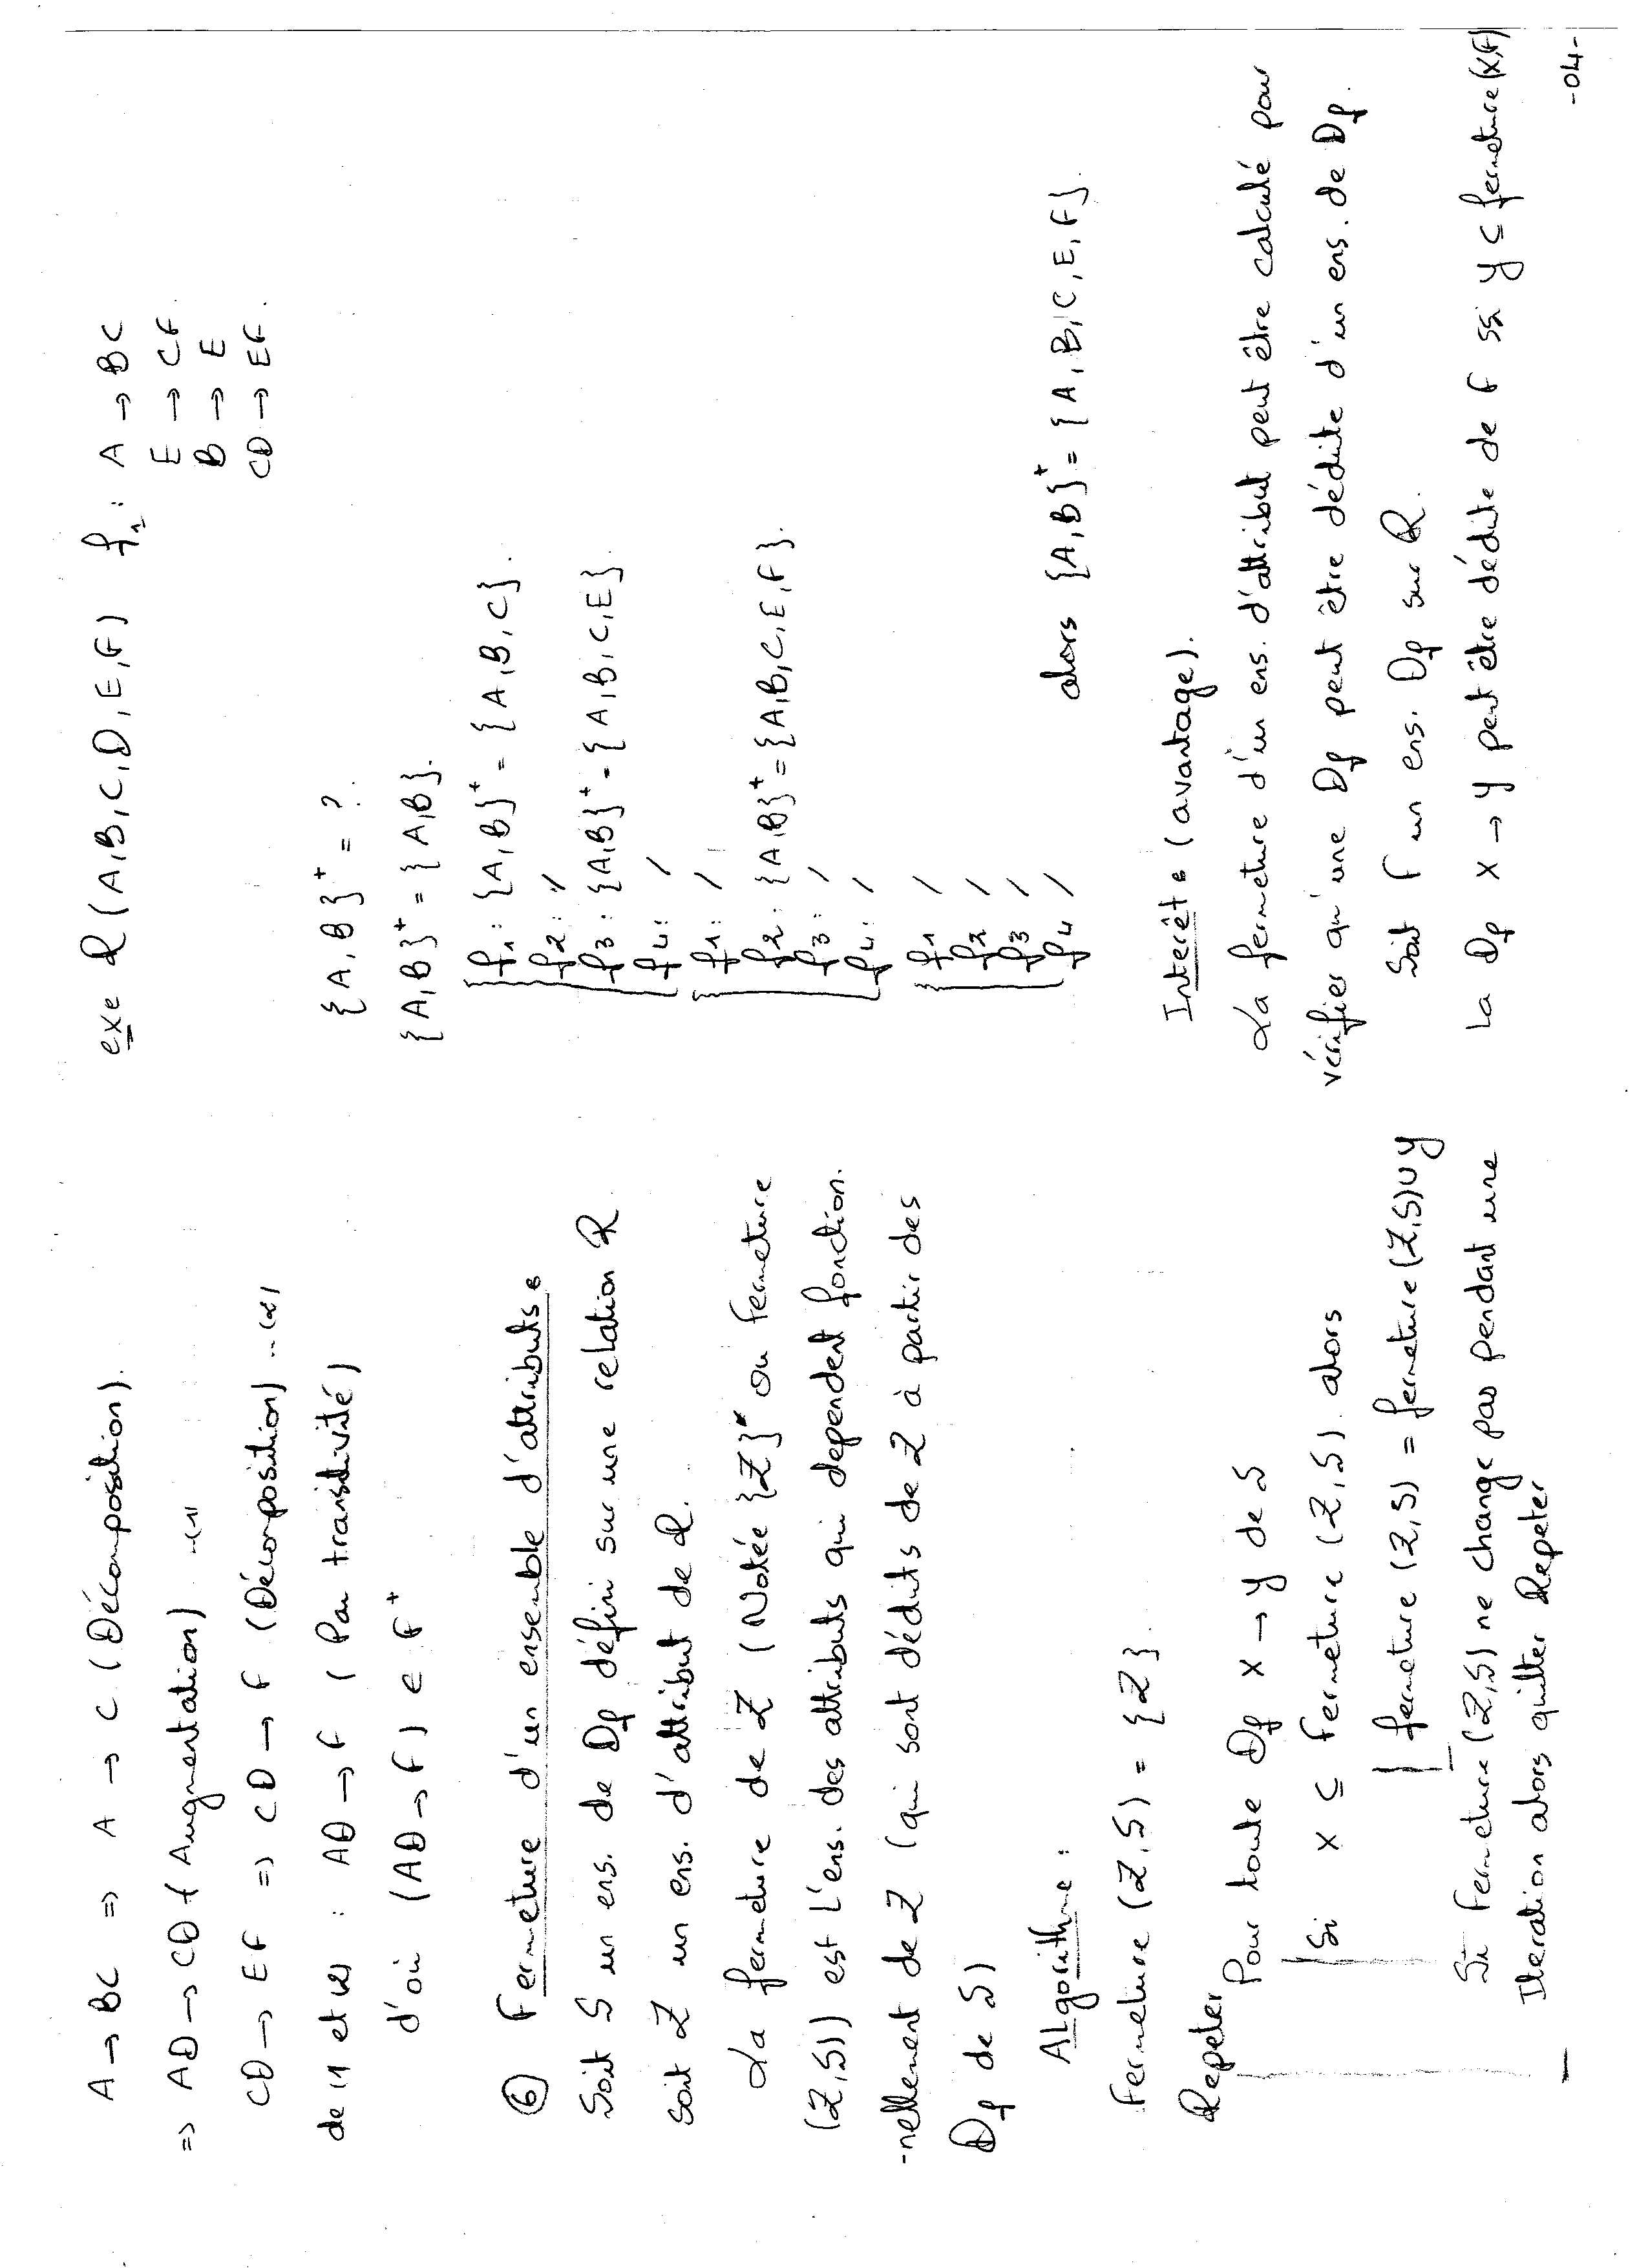 A → BC => A → C (Décomposition).
=> AD → CD (Augmentation) ...(1)
CD → EF => CD → F (Décomposition) ...(2)
de (1) et (2) : AD → F (Par transitivité)
d'où (AD → F) ∈ F⁺
⑥ Fermeture d'un ensemble d'attributs :
Soit S un ens. de Df défini sur une relation R
soit Z un ens. d'attribut de R.
La fermeture de Z (Notée {Z}⁺ ou Fermeture
(Z,S)) est l'ens. des attributs qui dependent fonction.
-nellement de Z (qui sont déduits de Z à partir des
Df de S)
ALgorithme :
Fermeture (Z,S) = {Z}.
Repeter
Pour toute Df X → Y de S
Si X ⊆ Fermeture (Z,S) alors
fermeture (Z,S) = fermeture (Z,S) ∪ Y
Si Fermeture (Z,S) ne change pas pendant une
Iteration alors quitter Repeter
exe R (A,B,C,D,E,F) f₁ : A → BC
E → CF.
B → E
CD → EF.
{A,B}⁺ = ?
{A,B}⁺ = {A,B}.
f1 : {A,B}⁺ = {A,B,C}.
f2 : /
f3 : {A,B}⁺ = {A,B,C,E}.
f4 : /
f1 : /
f2 : {A,B}⁺ = {A,B,C,E,F}.
f3 : /
f4 : /
f1 /
f2 /
f3 /
f4 /
alors {A,B}⁺ = {A,B,C,E,F}.
Interêt : (avantage).
La fermeture d'un ens. d'attribut peut être calculé pour
vérifier qu'une Df peut être déduite d'un ens. de Df.
Soit F un ens. Df sur R.
La Df X → Y peut être déduite de F ssi Y ⊂ fermeture (X,F)
-04-